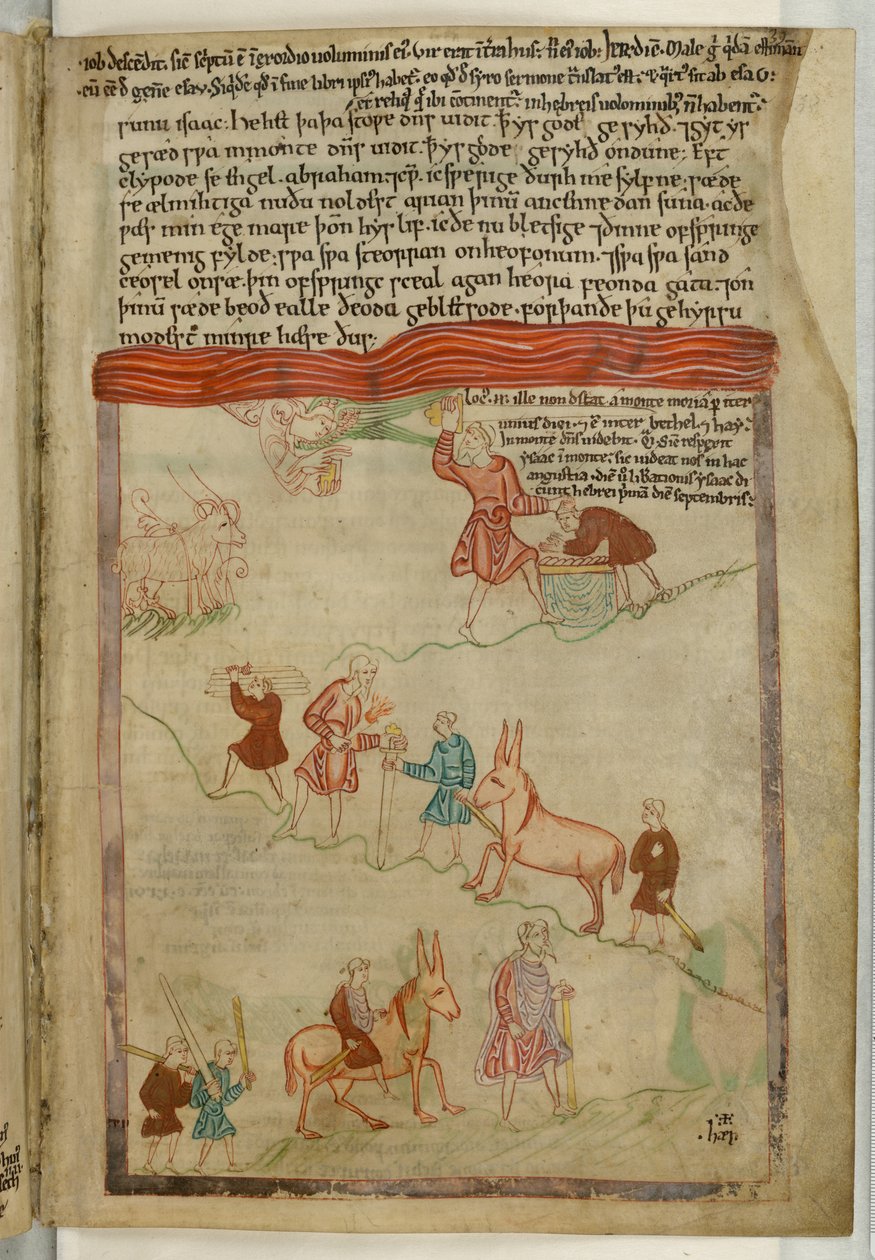 iob descendit. sic̄ sc̄ptū ē ī exordio uoluminis ei᾽. Vir erat ī t̄ra hus. iob.
eū eē d̄ gen̄e esau. ī fine libri ipsi᾽ habet᷑. eo qd̄ d̄ syro sermone t̄nslat᾽ est. ab esau.
ibi cōtinent᷑. in hebreis uoluminib᾽ ñ habent᷑.
sunu isaac. He het þa þa stoƿe dn̄s uidit. ꝥ ys god gesyhð. ⁊ gyt ys
gesæd sƿa in monte dn̄s uidit. ꝥ ys gode gesyhð on dune; Eft
clypode se engel. abraham ⁊ cƿ̄. ic sƿerige ðurh me sylfne. sæde
se ælmihtiga nu ðu noldest arian þinū ancennedan suna. ac ðe
ƿæs min ege mare þon̄ hys lif. ic ðe nu bletsige ⁊ ðinne ofspringe
gemenig fylde. sƿa sƿa steorran on heofonum. ⁊ sƿa sƿa sand
ceosel on sæ. þin ofspringc sceal agan heora feonda gata. ⁊ on
þinū sæde beoð ealle ðeoda gebletsode. forþan ðe þu gehyrsu
modest minre hæse ðus;
Loc᾽ ille non distat a monte moria p̱ iter
unius diei. ⁊ ē inter bethel ⁊ hay.
In monte dn̄s uidebit. sic̄ respexit
ysaac ī monte. sic uideat nos in hac
angustia. diē ū libationis ysaac di
cunt hebrei p̄mā diē septembris.